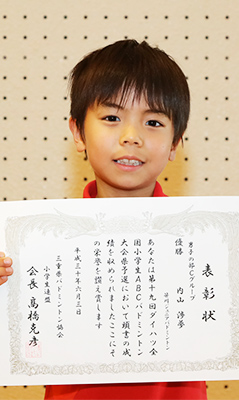 表彰状
男子の部Cグループ
優勝
内山 渉夢
あなたは第十九回ダイハツ全
国小学生ABCバドミントン
大会県予選において頭書の成
績を収められました ここにそ
の栄誉を讃え賞します
平成三十年六月三日
三重県バドミントン協会
小学生連盟
会長 高橋克彦